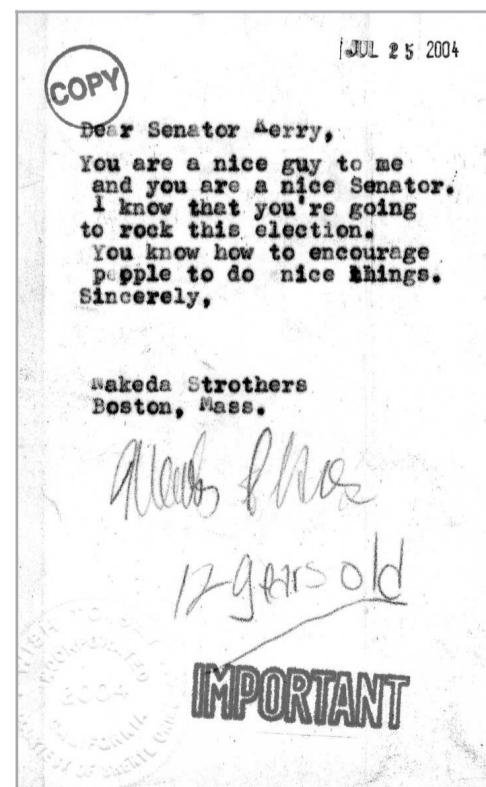 JUL 25 2004
COPY
Dear Senator Kerry,
You are a nice guy to me
and you are a nice Senator.
I know that you're going
to rock this election.
You know how to encourage
people to do nice things.
Sincerely,
Makeda Strothers
Boston, Mass.
12 years old
IMPORTANT
2004
CALIFORNIA